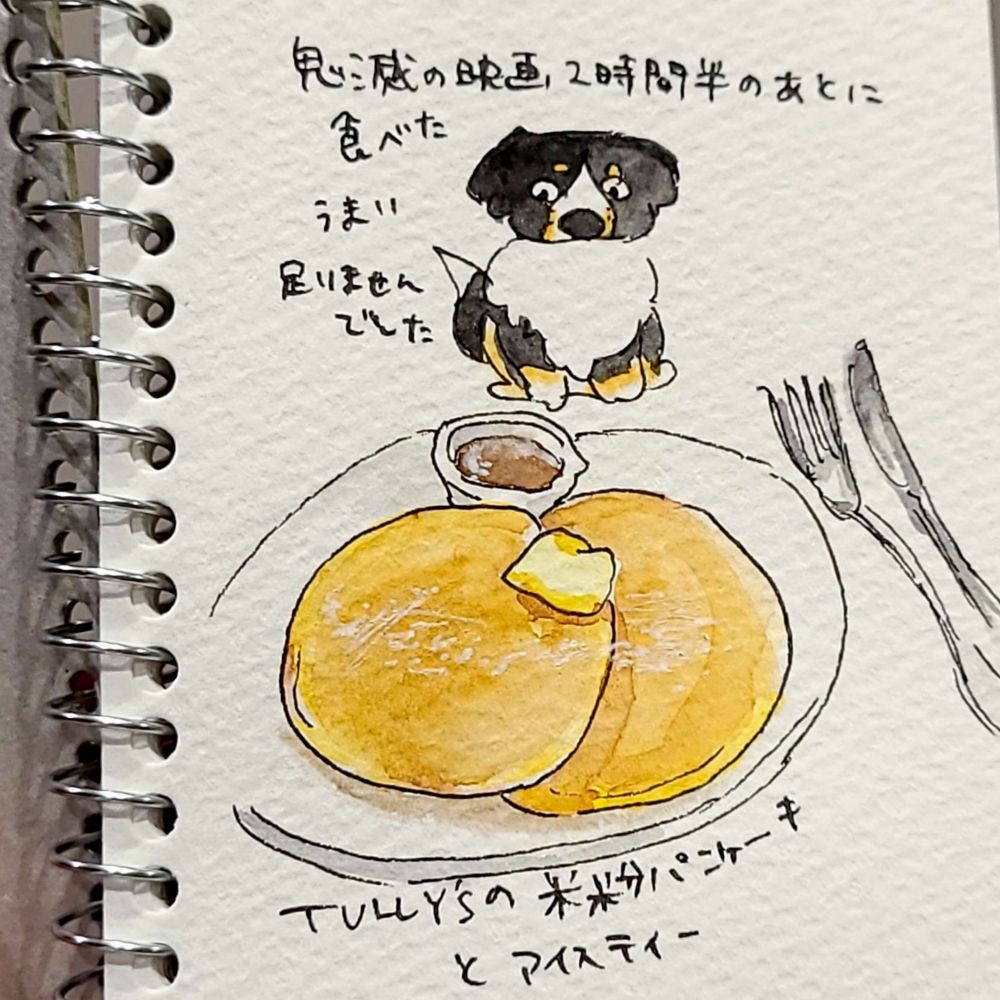 鬼滅の映画、2時間半のあとに
食べた
うまい
足りません
でした
TULLY'Sの 米粉パンケーキ
と アイスティー